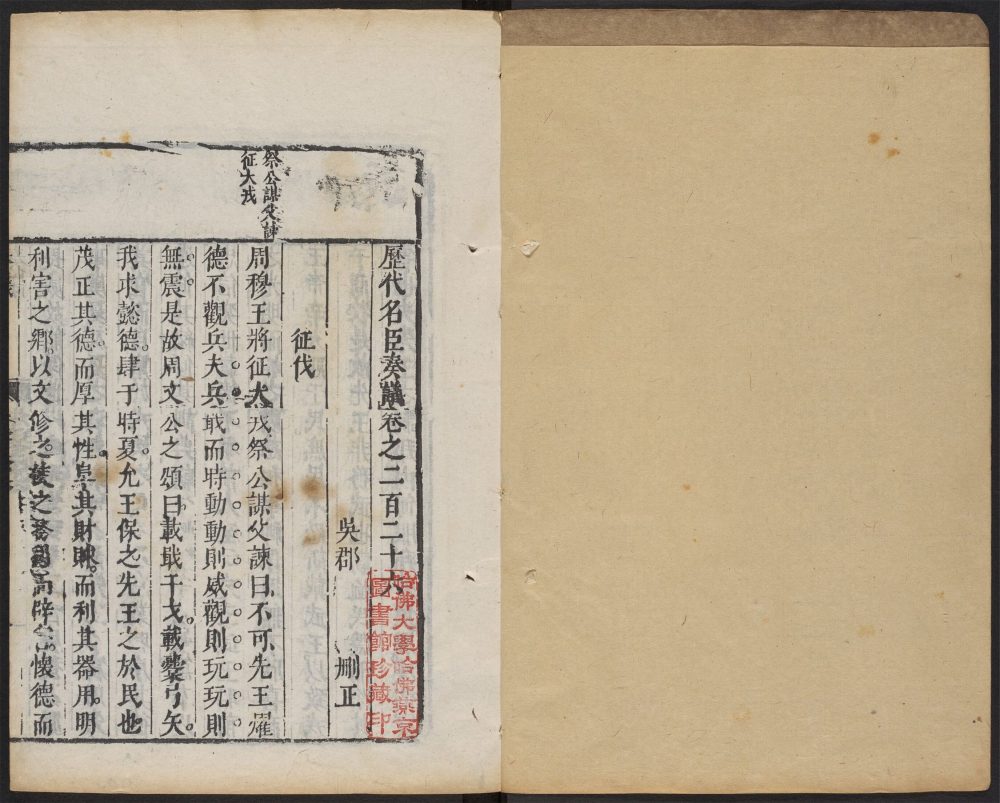 歷代名臣奏議卷之二百二十六
哈佛大學哈佛燕京
圖書館珍藏印
吳郡 刪正
征伐
祭公謀父諫
征大戎
周穆王將征大戎祭公謀父諫曰不可先王耀
德不觀兵夫兵戢而時動動則威觀則玩玩則
無震是故周文公之頌曰載戢干戈載櫜弓矢
我求懿德肆于時夏允王保之先王之於民也
茂正其德而厚其性阜其財賕而利其器用明
利害之鄉以文修之使之務而辟懷德而